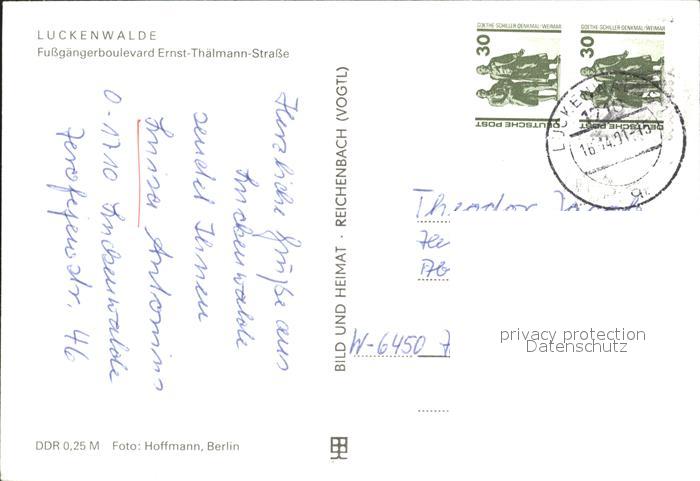 LUCKENWALDE
Fußgängerboulevard Ernst-Thälmann-Straße
Herzliche Grüße aus
Luckenwalde
sendet Ihnen
Luisa Antonius
O-1710 Luckenwalde
46
DDR 0,25 M Foto: Hoffmann, Berlin
BILD UND HEIMAT · REICHENBACH (VOGTL)
GOETHE-SCHILLER-DENKMAL·WEIMAR
30
DEUTSCHE POST
GOETHE-SCHILLER-DENKMAL·WEIMAR
30
DEUTSCHE POST
LUCKENWALDE
1710
Theodor
W-6450
privacy protection
Datenschutz